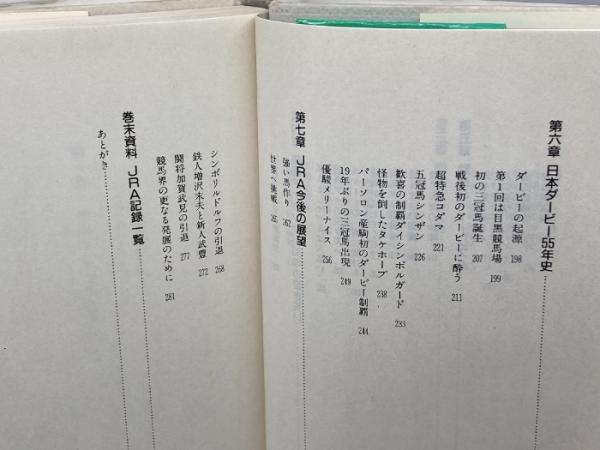 第六章 日本ダービー55年史
ダービーの起源 198
第1回は目黒競馬場 199
初の三冠馬誕生 207
戦後初のダービーに酔う 211
超特急コダマ 221
五冠馬シンザン 226
歓喜の制覇ダイシンボルガード 233
怪物を倒したタケホープ 238
パーソロン産駒初のダービー制覇 244
19年ぶりの三冠馬出現 249
優駿メリーナイス 256
第七章 JRA今後の展望
強い馬作り 262
世界へ挑戦 265
シンボリルドルフの引退 268
鉄人増沢末夫と新人武豊 272
闘将加賀武見の引退 277
競馬界の更なる発展のために 281
巻末資料 JRA記録一覧
あとがき